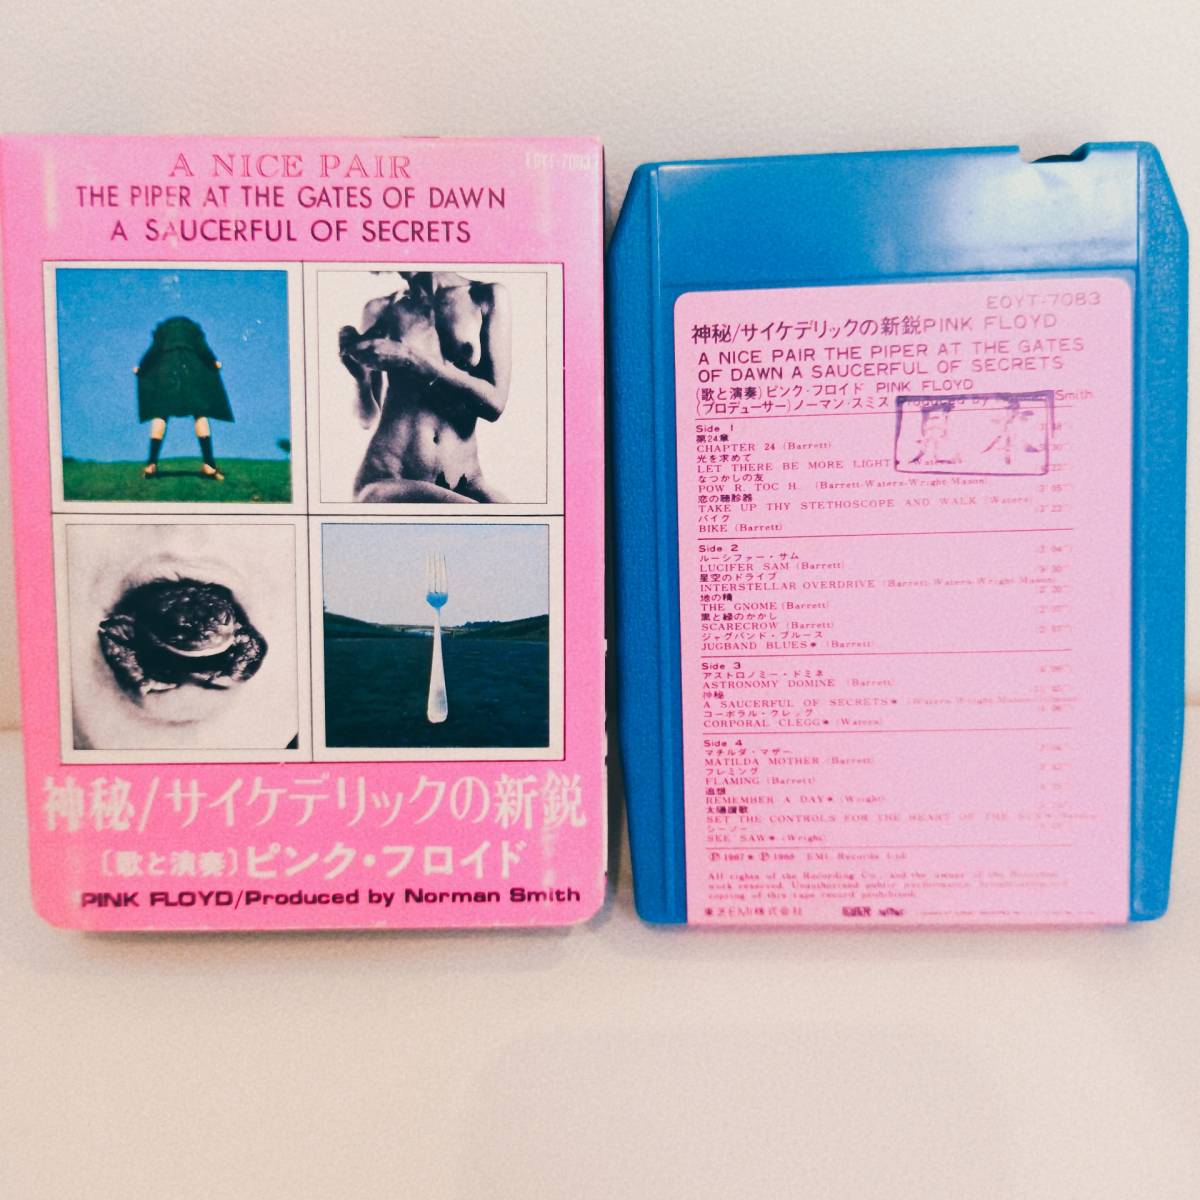 A NICE PAIR
EOYT-7083
THE PIPER AT THE GATES OF DAWN
A SAUCERFUL OF SECRETS
神秘/サイケデリックの新鋭
〔歌と演奏〕ピンク・フロイド
PINK FLOYD/Produced by Norman Smith
EOYT-7083
神秘/サイケデリックの新鋭PINK FLOYD
A NICE PAIR THE PIPER AT THE GATES
OF DAWN A SAUCERFUL OF SECRETS
(歌と演奏)ピンク・フロイド PINK FLOYD
(プロデューサー)ノーマン・スミス Produced by Norman Smith
見本
Side 1
第24章
CHAPTER 24 (Barrett)
光を求めて
LET THERE BE MORE LIGHT (Waters)
なつかしの友
POW R. TOC H. (Barrett-Waters-Wright-Mason)
恋の聴診器
TAKE UP THY STETHOSCOPE AND WALK (Waters)
バイク
BIKE (Barrett)
Side 2
ルーシファー・サム
LUCIFER SAM (Barrett)
星空のドライブ
INTERSTELLAR OVERDRIVE (Barrett-Waters-Wright-Mason)
地の精
THE GNOME (Barrett)
黒と緑のかかし
SCARECROW (Barrett)
ジャグバンド・ブルース
JUGBAND BLUES★ (Barrett)
Side 3
アストロノミー・ドミネ
ASTRONOMY DOMINE (Barrett)
神秘
A SAUCERFUL OF SECRETS★
コーポラル・クレッグ
CORPORAL CLEGG★ (Waters)
Side 4
マチルダ・マザー
MATILDA MOTHER (Barrett)
フレミング
FLAMING (Barrett)
追想
REMEMBER A DAY★ (Wright)
太陽讃歌
SET THE CONTROLS FOR THE HEART OF THE SUN★
シーソー
SEE SAW★ (Wright)
Ⓟ1967★ Ⓟ1968 EMI Records Ltd.
All rights of the Recording Co., and the owner of the Recorded
work reserved. Unauthorised public performance, broadcasting and
copying of this tape record prohibited.
東芝EMI株式会社